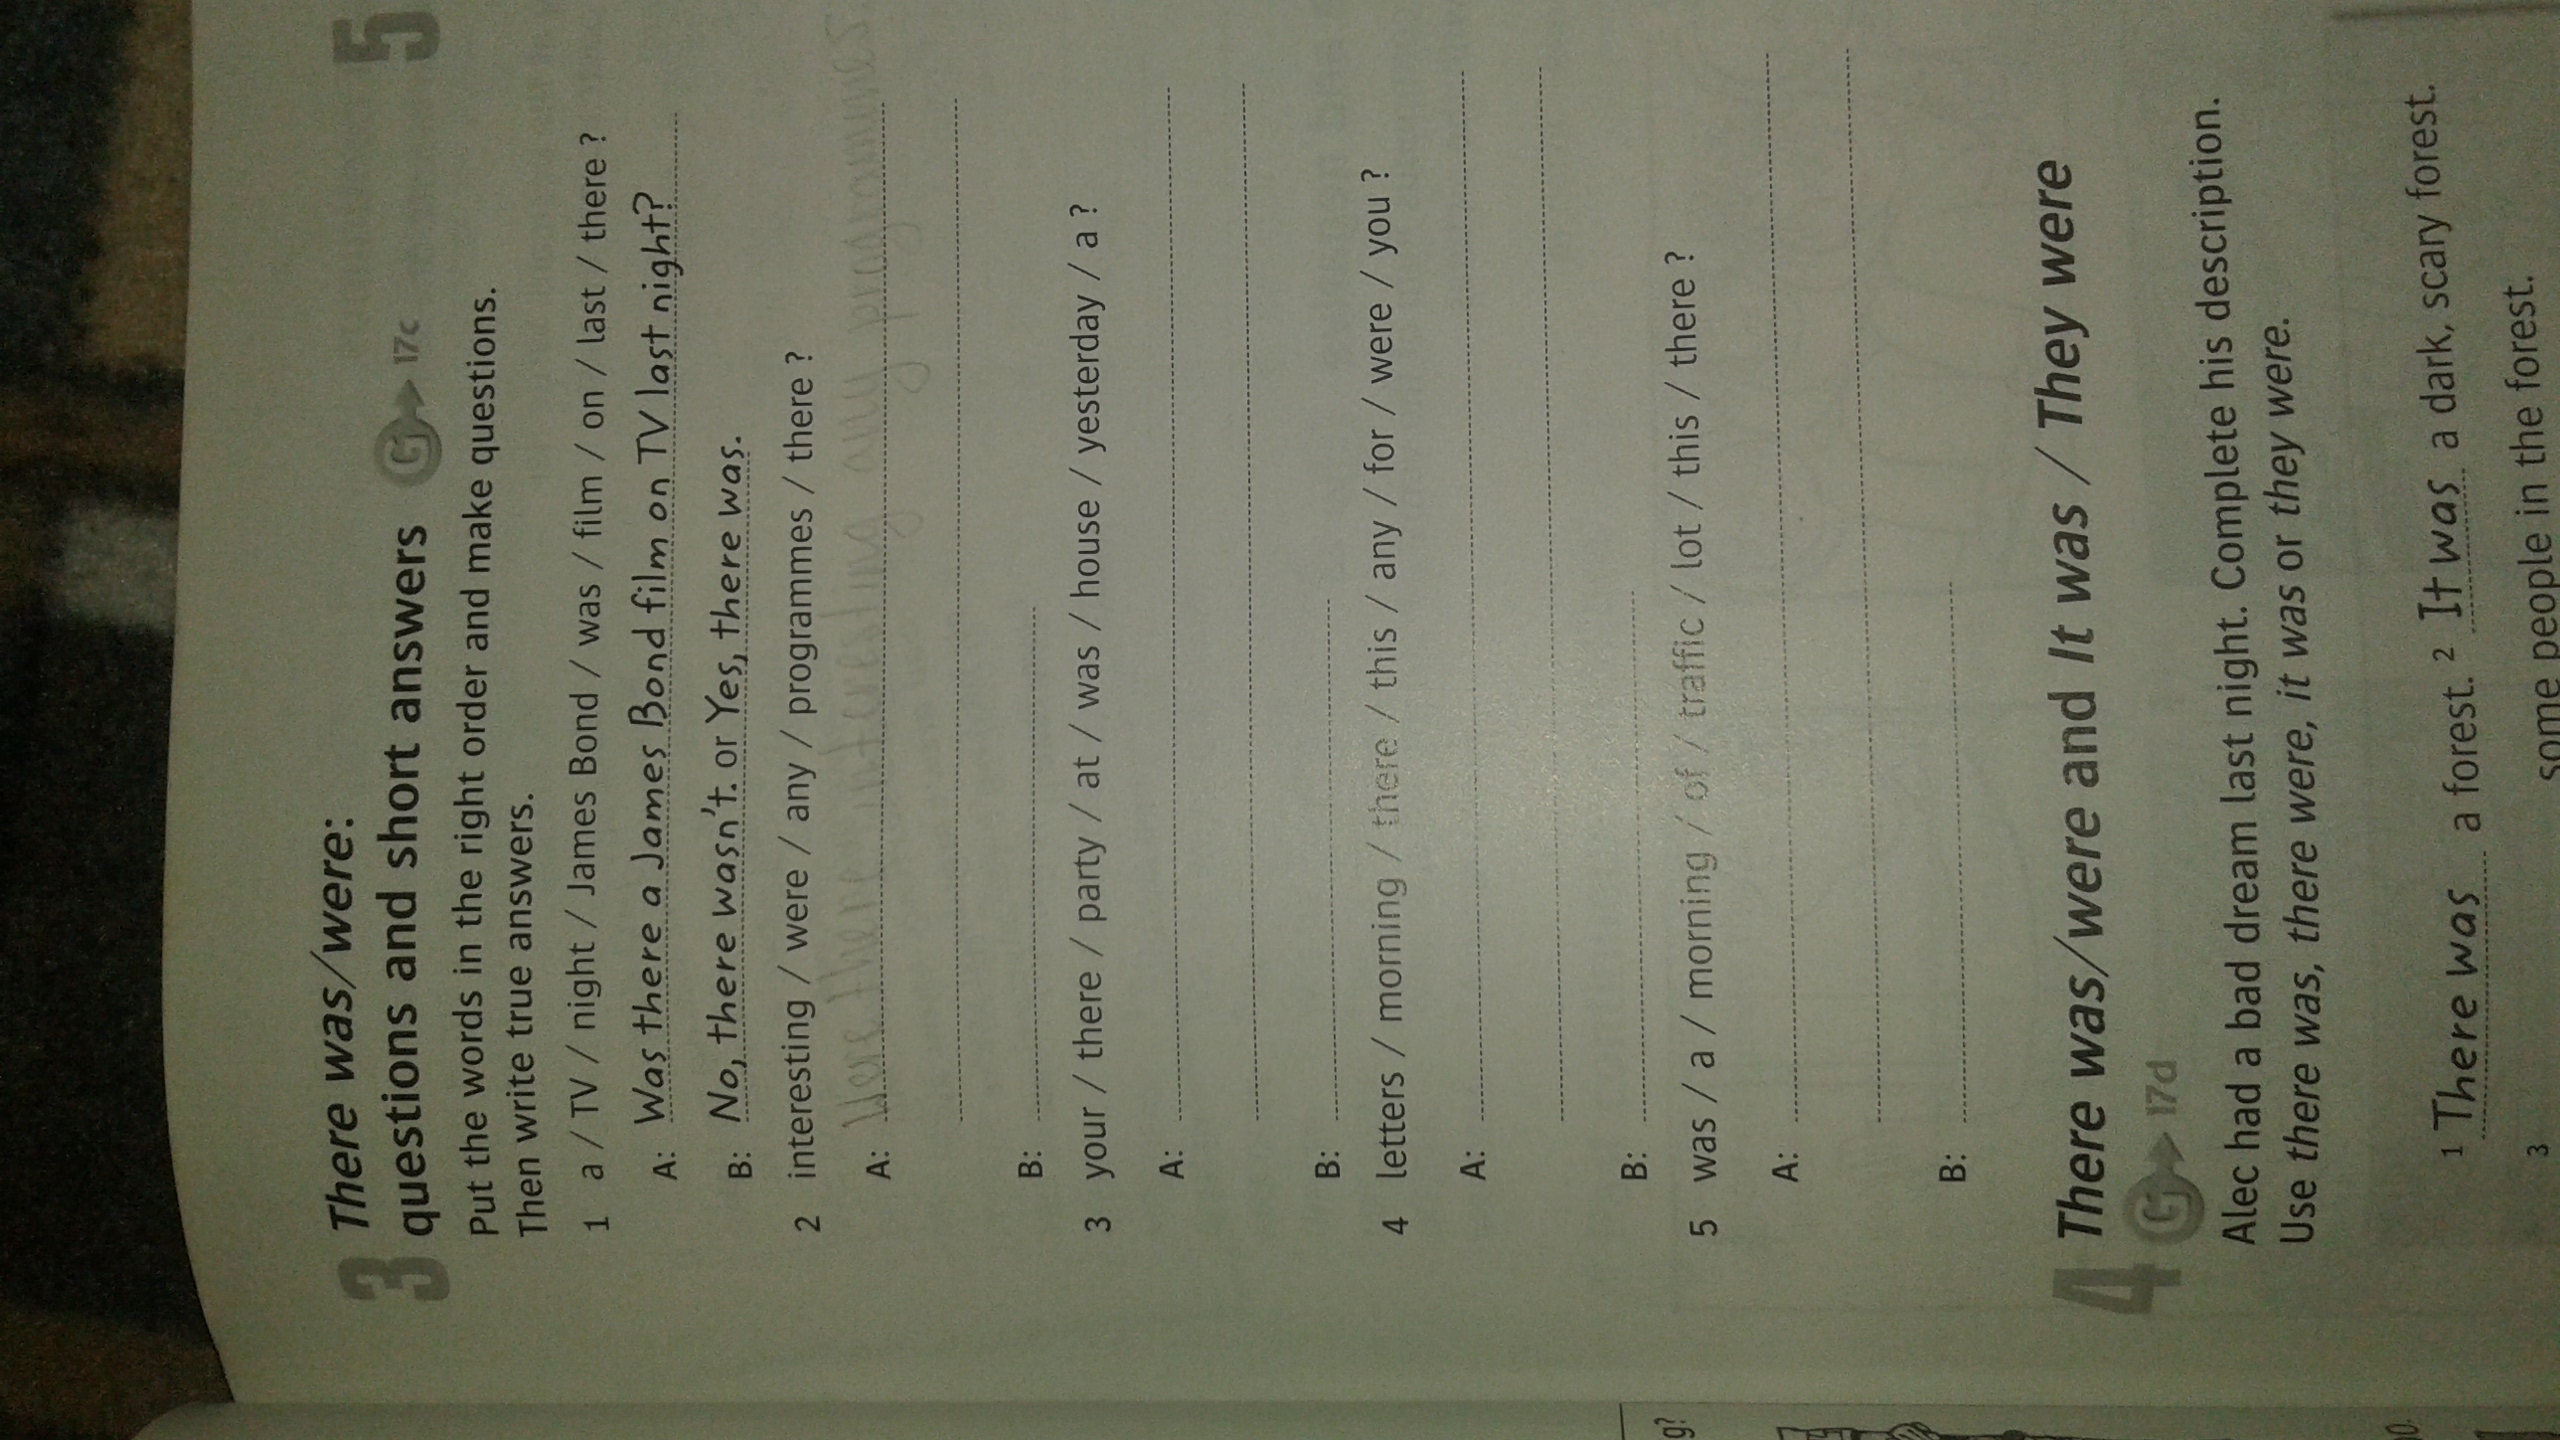 3 There was/were:
questions and short answers G 17c
Put the words in the right order and make questions.
Then write true answers.
1 a / TV / night / James Bond / was / film / on / last / there ?
A: Was there a James Bond film on TV last night?
B: No, there wasn't. or Yes, there was.
2 interesting / were / any / programmes / there ?
A: Were there interesting any programmes
B:
3 your / there / party / at / was / house / yesterday / a ?
A:
B:
4 letters / morning / there / this / any / for / were / you ?
A:
B:
5 was / a / morning / of / traffic / lot / this / there ?
A:
B:
4 There was/were and It was / They were
G 17d
Alec had a bad dream last night. Complete his description.
Use there was, there were, it was or they were.
1 There was a forest. 2 It was a dark, scary forest.
3 some people in the forest.
5
g?